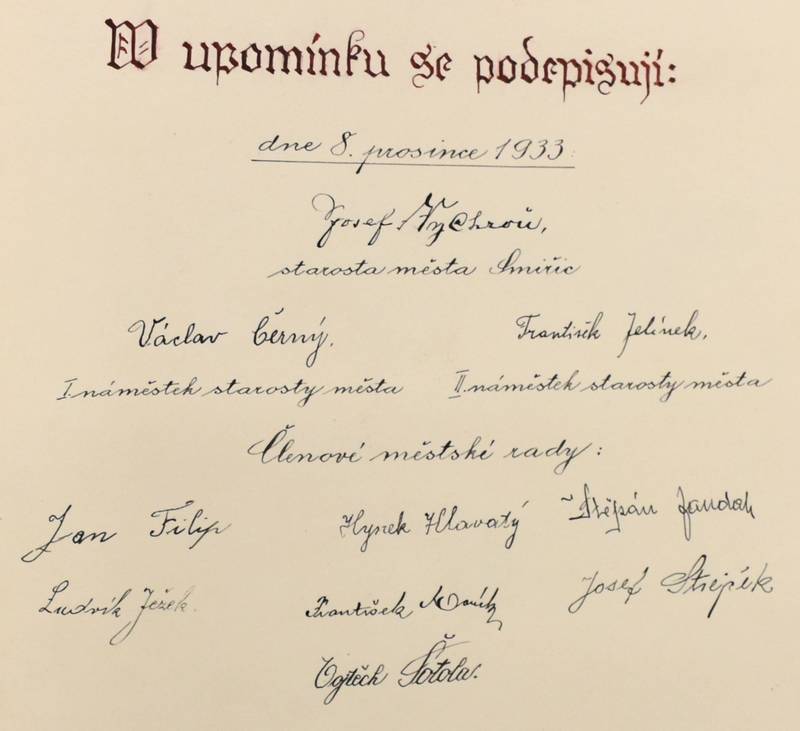 W upomínku se podepisují:
dne 8. prosince 1933.
Josef
starosta města Smiřic
Václav Černý, František Jelínek,
I. náměstek starosty města II. náměstek starosty města
Členové městské rady:
Jan Filip Hynek Hlavatý Štěpán Jandah
Ludvík Ježek. František Josef Střepěk
Vojtěch Šotola.